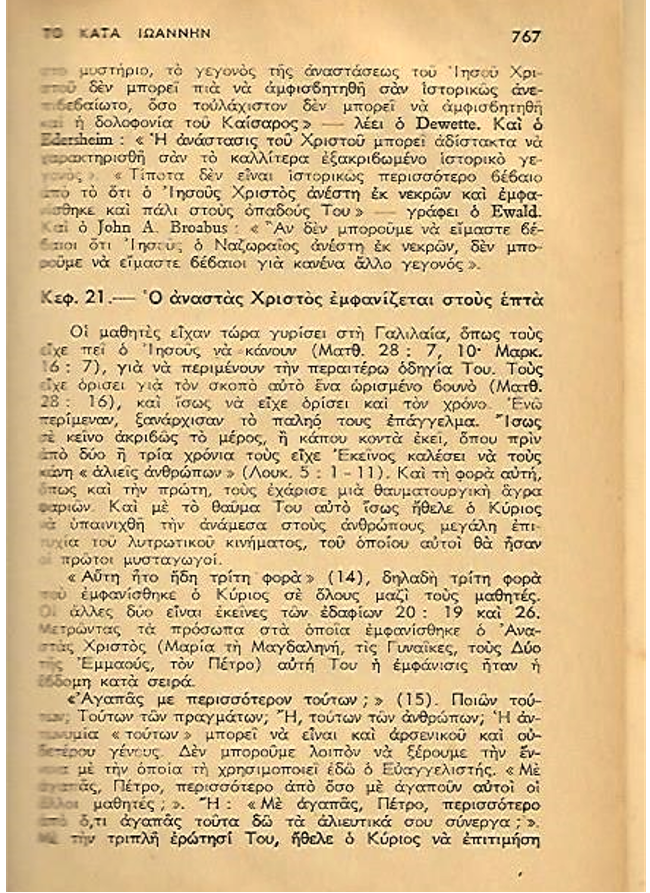 ΤΟ ΚΑΤΑ ΙΩΑΝΝΗΝ 767
μυστήριο, τὸ γεγονὸς τῆς ἀναστάσεως τοῦ Ἰησοῦ Χρι-
δὲν μπορεῖ πιὰ νὰ ἀμφισβητηθῆ σὰν ἱστορικῶς ἀνε-
πιβεβαίωτο, ὅσο τοὐλάχιστον δὲν μπορεῖ νὰ ἀμφισβητηθῆ
καὶ ἡ δολοφονία τοῦ Καίσαρος» — λέει ὁ Dewette. Καὶ ὁ
Edersheim : « Ἡ ἀνάστασις τοῦ Χριστοῦ μπορεῖ ἀδίστακτα νὰ
χαρακτηρισθῆ σὰν τὸ καλλίτερα ἐξακριβωμένο ἱστορικὸ γε-
γονὸς ». « Τίποτα δὲν εἶναι ἱστορικῶς περισσότερο βέβαιο
ἀπὸ τὸ ὅτι ὁ Ἰησοῦς Χριστὸς ἀνέστη ἐκ νεκρῶν καὶ ἐμφα-
νίσθηκε καὶ πάλι στοὺς ὀπαδούς Του » — γράφει ὁ Ewald.
Καὶ ὁ John A. Broabus : « Ἂν δὲν μποροῦμε νὰ εἴμαστε βέ-
βαιοι ὅτι Ἰησοῦς ὁ Ναζωραῖος ἀνέστη ἐκ νεκρῶν, δὲν μπο-
ροῦμε νὰ εἴμαστε βέβαιοι γιὰ κανένα ἄλλο γεγονός ».
Κεφ. 21.— Ὁ ἀναστὰς Χριστὸς ἐμφανίζεται στοὺς ἑπτὰ
Οἱ μαθητὲς εἶχαν τώρα γυρίσει στὴ Γαλιλαία, ὅπως τοὺς
εἶχε πεῖ ὁ Ἰησοῦς νὰ κάνουν (Ματθ. 28 : 7, 10· Μαρκ.
16 : 7), γιὰ νὰ περιμένουν τὴν περαιτέρω ὁδηγία Του. Τοὺς
εἶχε ὁρίσει γιὰ τὸν σκοπὸ αὐτὸ ἕνα ὡρισμένο βουνὸ (Ματθ.
28 : 16), καὶ ἴσως νὰ εἶχε ὁρίσει καὶ τὸν χρόνο. Ἐνῶ
περίμεναν, ξανάρχισαν τὸ παληό τους ἐπάγγελμα. Ἴσως
σὲ κεῖνο ἀκριβῶς τὸ μέρος, ἢ κάπου κοντὰ ἐκεῖ, ὅπου πρὶν
ἀπὸ δύο ἢ τρία χρόνια τοὺς εἶχε Ἐκεῖνος καλέσει νὰ τοὺς
κάνη « ἁλιεῖς ἀνθρώπων » (Λουκ. 5 : 1 - 11). Καὶ τὴ φορὰ αὐτή,
ὅπως καὶ τὴν πρώτη, τοὺς ἐχάρισε μιὰ θαυματουργικὴ ἄγρα
ψαριῶν. Καὶ μὲ τὸ θαῦμα Του αὐτὸ ἴσως ἤθελε ὁ Κύριος
νὰ ὑπαινιχθῆ τὴν ἀνάμεσα στοὺς ἀνθρώπους μεγάλη ἐπι-
τυχία τοῦ λυτρωτικοῦ κινήματος, τοῦ ὁποίου αὐτοὶ θὰ ἦσαν
οἱ πρῶτοι μυσταγωγοί.
« Αὕτη ἦτο ἤδη τρίτη φορὰ » (14), δηλαδὴ τρίτη φορὰ
ποὺ ἐμφανίσθηκε ὁ Κύριος σὲ ὅλους μαζὶ τοὺς μαθητές.
Οἱ ἄλλες δύο εἶναι ἐκεῖνες τῶν ἐδαφίων 20 : 19 καὶ 26.
Μετρώντας τὰ πρόσωπα στὰ ὁποῖα ἐμφανίσθηκε ὁ Ἀνα-
στὰς Χριστὸς (Μαρία τὴ Μαγδαληνή, τὶς Γυναῖκες, τοὺς Δύο
τῆς Ἐμμαούς, τὸν Πέτρο) αὐτή Του ἡ ἐμφάνισις ἦταν ἡ
ἕβδομη κατὰ σειρά.
«Ἀγαπᾶς με περισσότερον τούτων ; » (15). Ποιῶν τού-
των; Τούτων τῶν πραγμάτων; Ἤ, τούτων τῶν ἀνθρώπων; Ἡ ἀν-
τωνυμία « τούτων » μπορεῖ νὰ εἶναι καὶ ἀρσενικοῦ καὶ οὐ-
δετέρου γένους. Δὲν μποροῦμε λοιπὸν νὰ ξέρουμε τὴν ἔν-
νοια μὲ τὴν ὁποία τὴ χρησιμοποιεῖ ἐδῶ ὁ Εὐαγγελιστής. « Μὲ
ἀγαπᾶς, Πέτρο, περισσότερο ἀπὸ ὅσο μὲ ἀγαποῦν αὐτοὶ οἱ
ἄλλοι μαθητές ; ». Ἤ : « Μὲ ἀγαπᾶς, Πέτρο, περισσότερο
ἀπὸ ὅ,τι ἀγαπᾶς τοῦτα δῶ τὰ ἁλιευτικά σου σύνεργα ; ».
Μὲ τὴν τριπλῆ ἐρώτησί Του, ἤθελε ὁ Κύριος νὰ ἐπιτιμήση